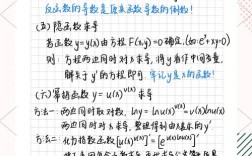 反函数的导数是原来函数导数的倒数!
(五)隐函数求导
若函数y=y(x)由方程 F(x,y)=0确定,(如e^y+xy=0)
则:方程两边同时对x求导,将y看作中间量,
解关于y'的方程即可.牢记y是x的函数!
(六)幂指函数 y=u(x)^v(x) 求导
方法一:两边同时取对数,lny=lnu(x)^v(x)=v(x)lnu(x)
两边同时对x求导,整理得到由x表示的y'
方法二:化为指数函数[u(x)^v(x)]'=[e^v(x)lnu(x)]'